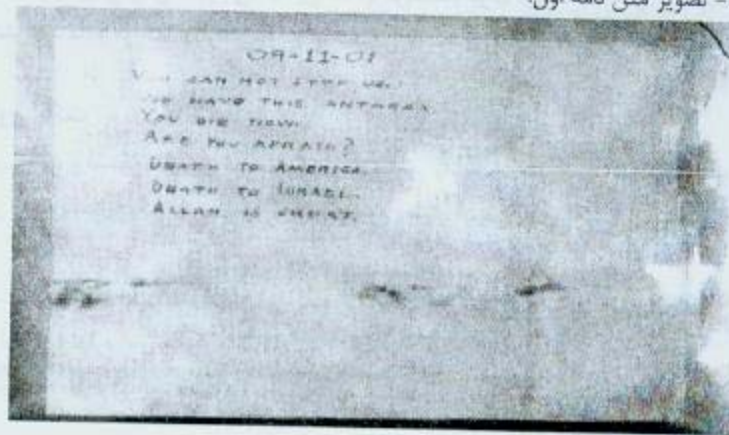 - تصویر متن نامه اول:
09-11-01
YOU CAN NOT STOP US.
WE HAVE THIS ANTHRAX.
YOU DIE NOW.
ARE YOU AFRAID?
DEATH TO AMERICA.
DEATH TO ISRAEL.
ALLAH IS GREAT.